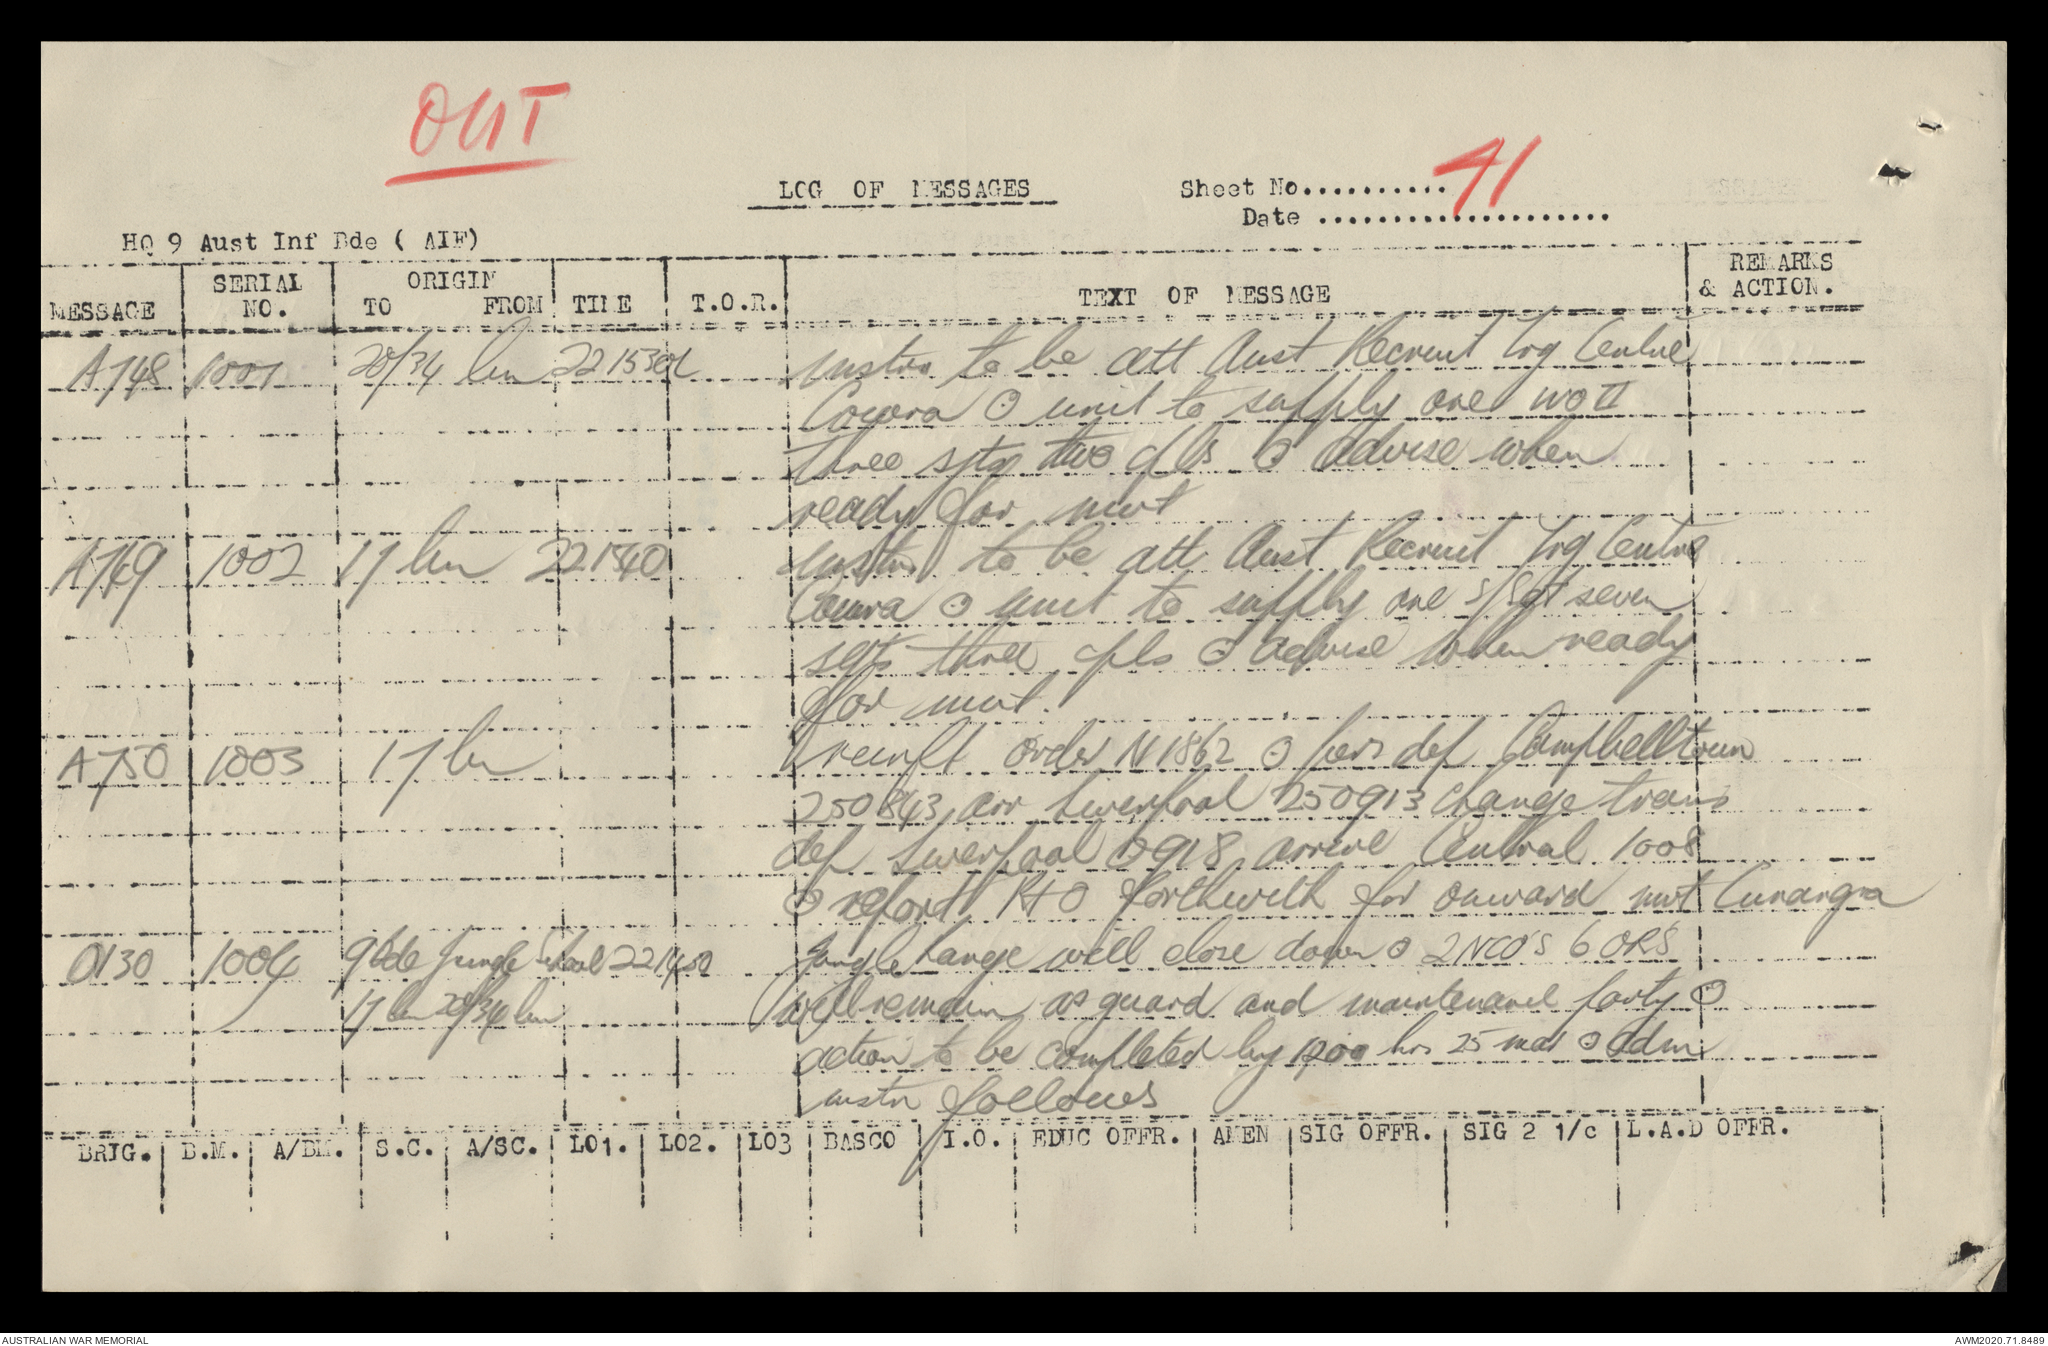 OUT
LOG OF MESSAGES
Sheet No........... 41
Date ....................
HQ 9 Aust Inf Bde ( AIF)
MESSAGE SERIAL NO. ORIGIN TO FROM TIME T.O.R. TEXT OF MESSAGE REMARKS & ACTION.
A748 1001 20/34 bn 221530L instrs to be att Aust Recruit Trg Centre
Cowra ⊙ unit to supply one WO II
three sgts two cpls ⊙ advise when
ready for mvt
A749 1002 17 bn 221540 instrs to be att Aust Recruit Trg Centre
Cowra ⊙ unit to supply one S/Sgt seven
sgts three cpls ⊙ advise when ready
for mvt.
A750 1003 17 bn reinft order N1862 ⊙ pers dep Campbelltown
250843 arr Liverpool 250913 change trains
dep Liverpool 0918 arrive Central 1008
⊙ report RTO forthwith for onward mvt Cunungra
O130 1004 9 bde Jungle School 221450 Jungle Range will close down ⊙ 2 NCO'S 6 ORS
17 bn 20/34 bn will remain as guard and maintenance party ⊙
action to be completed by 1200 hrs 25 mar ⊙ adm
instn follows
BRIG. B.M. A/BM. S.C. A/SC. LO1. LO2. LO3 BASCO I.O. EDUC OFFR. AMEN SIG OFFR. SIG 2 1/c L.A.D OFFR.
AUSTRALIAN WAR MEMORIAL
AWM2020.71.8489